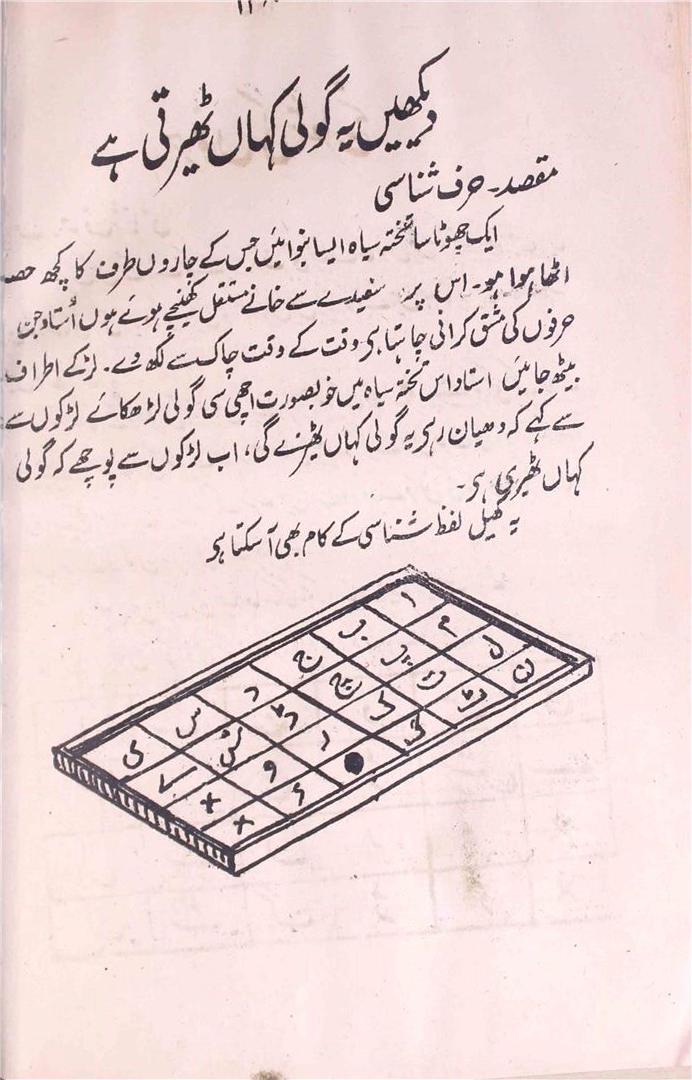 دیکھیں یہ گولی کہاں ٹھیرتی ہے
مقصد۔ حرف شناسی
ایک چھوٹا سا تختہ سیاہ ایسا بنوائیں جس کے چاروں طرف کا کچھ حصہ
اٹھا ہوا ہو۔ اس پر سفیدے سے خانے مستقل کھنچے ہوئے ہوں اُستاد جن
حرفوں کی مشق کرانی چاہتا ہی وقت کے وقت چاک سے لکھ دے۔ لڑکے اطراف
بیٹھ جائیں استاد اس تختہ سیاہ میں خوبصورت اچھی سی گولی لڑھکائے لڑکوں سے
سے کہے کہ دھیان رہی یہ گولی کہاں ٹھیرے گی، اب لڑکوں سے پوچھے کہ گولی
کہاں ٹھیری ہی۔
یہ کھیل لفظ شناسی کے کام بھی آ سکتا ہی
ا م ل ن
ب پ ت ٹ
ج چ ک گ
د ڈ ر
س ش و ء
ی
x
x